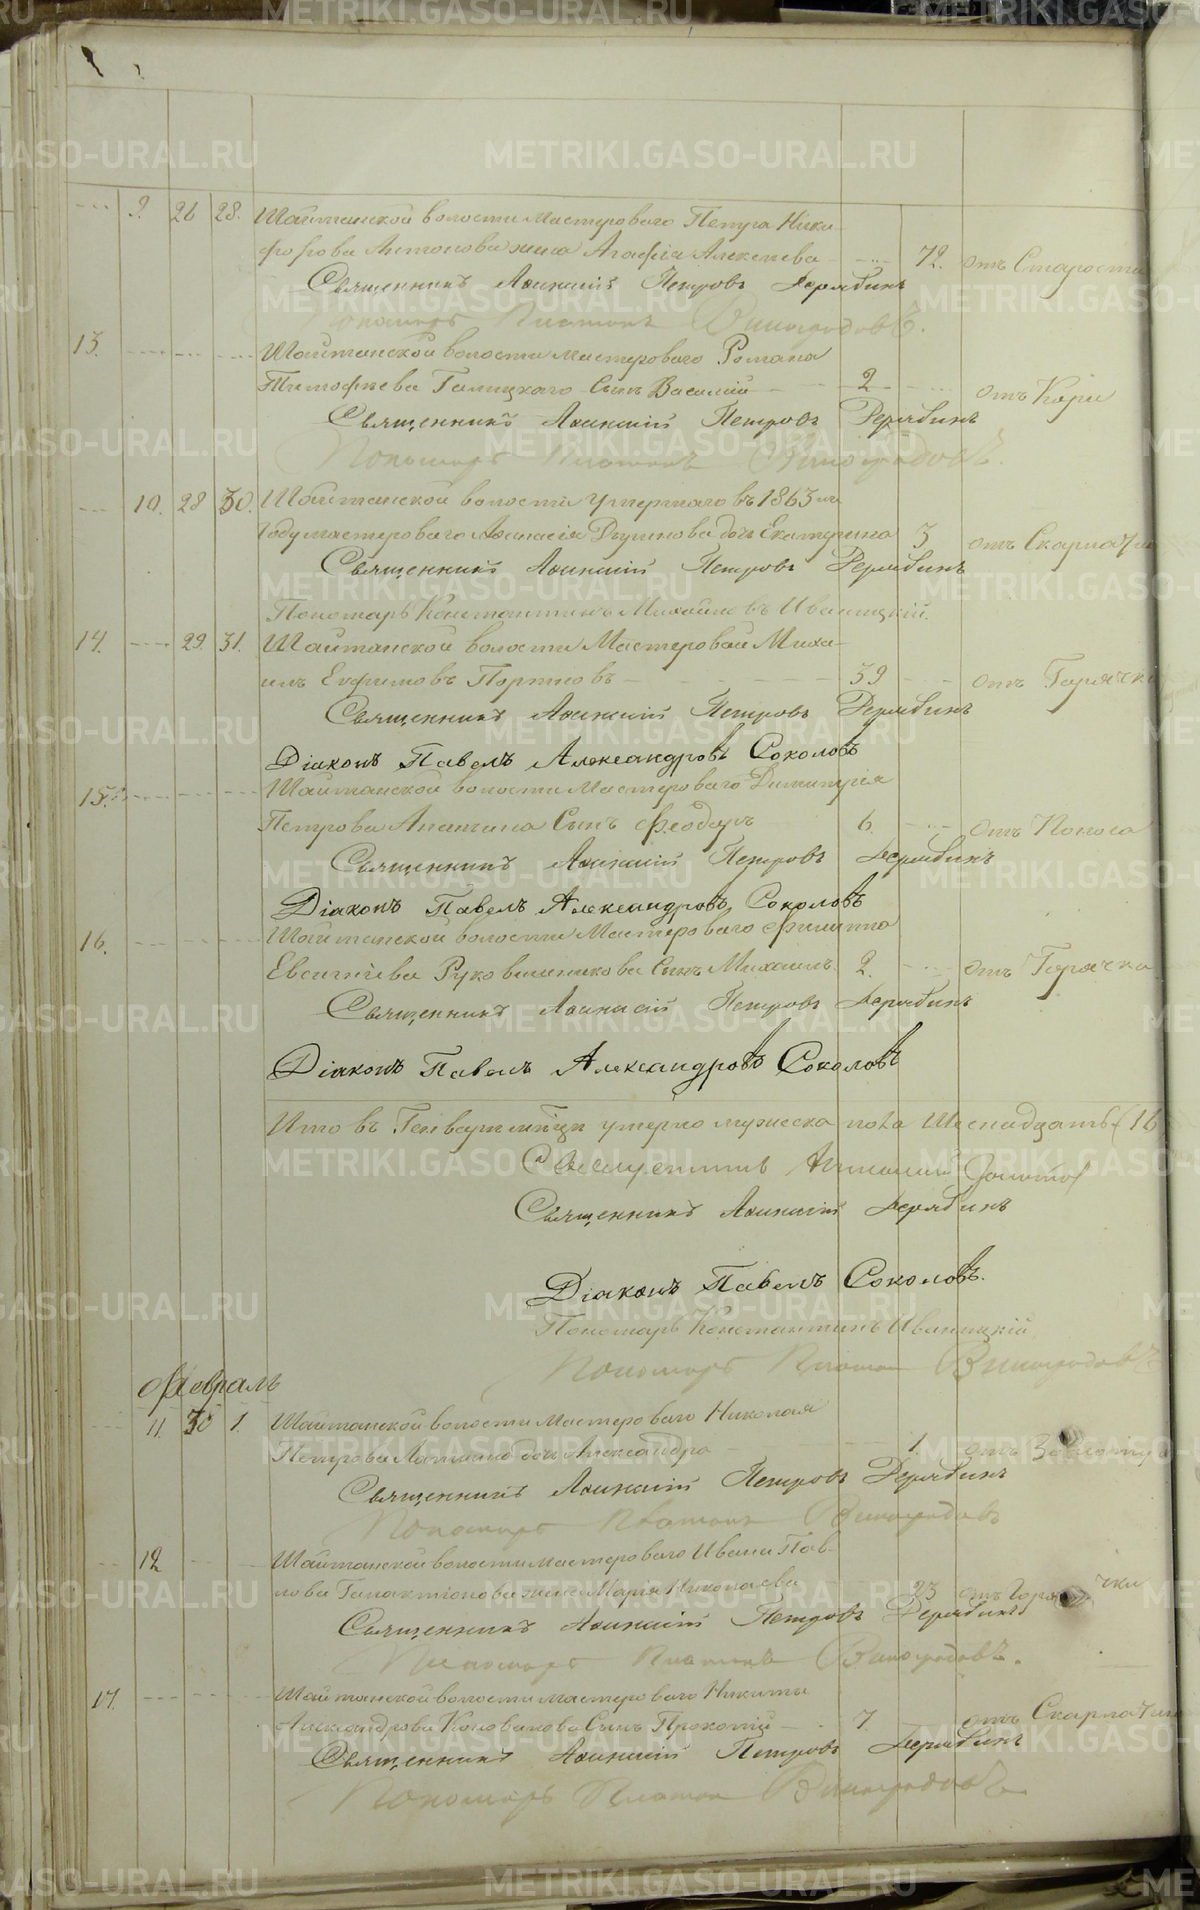 9. 26 28. Шайтанской волости Мастероваго Петра Ники-
форова Антонова жена Агафія Алексеева 72. отъ Старости
Священникъ Аѳанасій Петровъ Дерябинъ
Пономарь Платонъ Виноградовъ.
13. Шайтанской волости мастероваго Романа
Тимофеева Галицкаго Сынъ Василій 2 отъ Кори
Священникъ Аѳанасій Петровъ Дерябинъ
Пономарь Платонъ Виноградовъ.
10. 28 30. Шайтанской волости умершаго въ 1863 мъ
году мастероваго Аѳанасія дочь Екатерина 3 отъ Скарлатин
Священникъ Аѳанасій Петровъ Дерябинъ
Пономарь Константинъ Михайловъ Иваницкій.
14. 29. 31. Шайтанской волости Мастеровой Миха-
илъ Ефимовъ Портновъ 39 отъ Горячки
Священникъ Аѳанасій Петровъ Дерябинъ
Діаконъ Павелъ Александровъ Соколовъ
15. Шайтанской волости Мастероваго Димитрія
Петрова Ананьина Сынъ Феодоръ 6. отъ Поноса
Священникъ Аѳанасій Петровъ Дерябинъ
Діаконъ Павелъ Александровъ Соколовъ
16. Шайтанской волости Мастероваго Филиппа
Евсигніева Рукавишникова Сынъ Михаилъ. 2. отъ Горячки
Священникъ Аѳанасій Петровъ Дерябинъ
Діаконъ Павелъ Александровъ Соколовъ
умерло мужеска пола Шеснадцать (16
Священникъ
Священникъ Аѳанасій Дерябинъ
Діаконъ Павелъ Соколовъ.
Пономарь Константинъ Иваницкій
Пономарь Платонъ Виноградовъ
Февраль
11. 30 1. Шайтанской волости Мастероваго Николая
Петрова дочь Александра 1. отъ Золотухи
Священникъ Аѳанасій Петровъ Дерябинъ
Пономарь Платонъ Виноградовъ
12 Шайтанской волости мастероваго Ивана Пав-
лова Галактіонова жена Марія Николаева 23 отъ Горячки
Священникъ Аѳанасій Петровъ Дерябинъ
Пономарь Платонъ Виноградовъ.
17. Шайтанской волости мастероваго Никиты
Александрова Коновалова Сынъ Прокопій 7. отъ Скарлатин
Священникъ Аѳанасій Петровъ Дерябинъ
Пономарь Платонъ Виноградовъ
METRIKI.GASO-URAL.RU